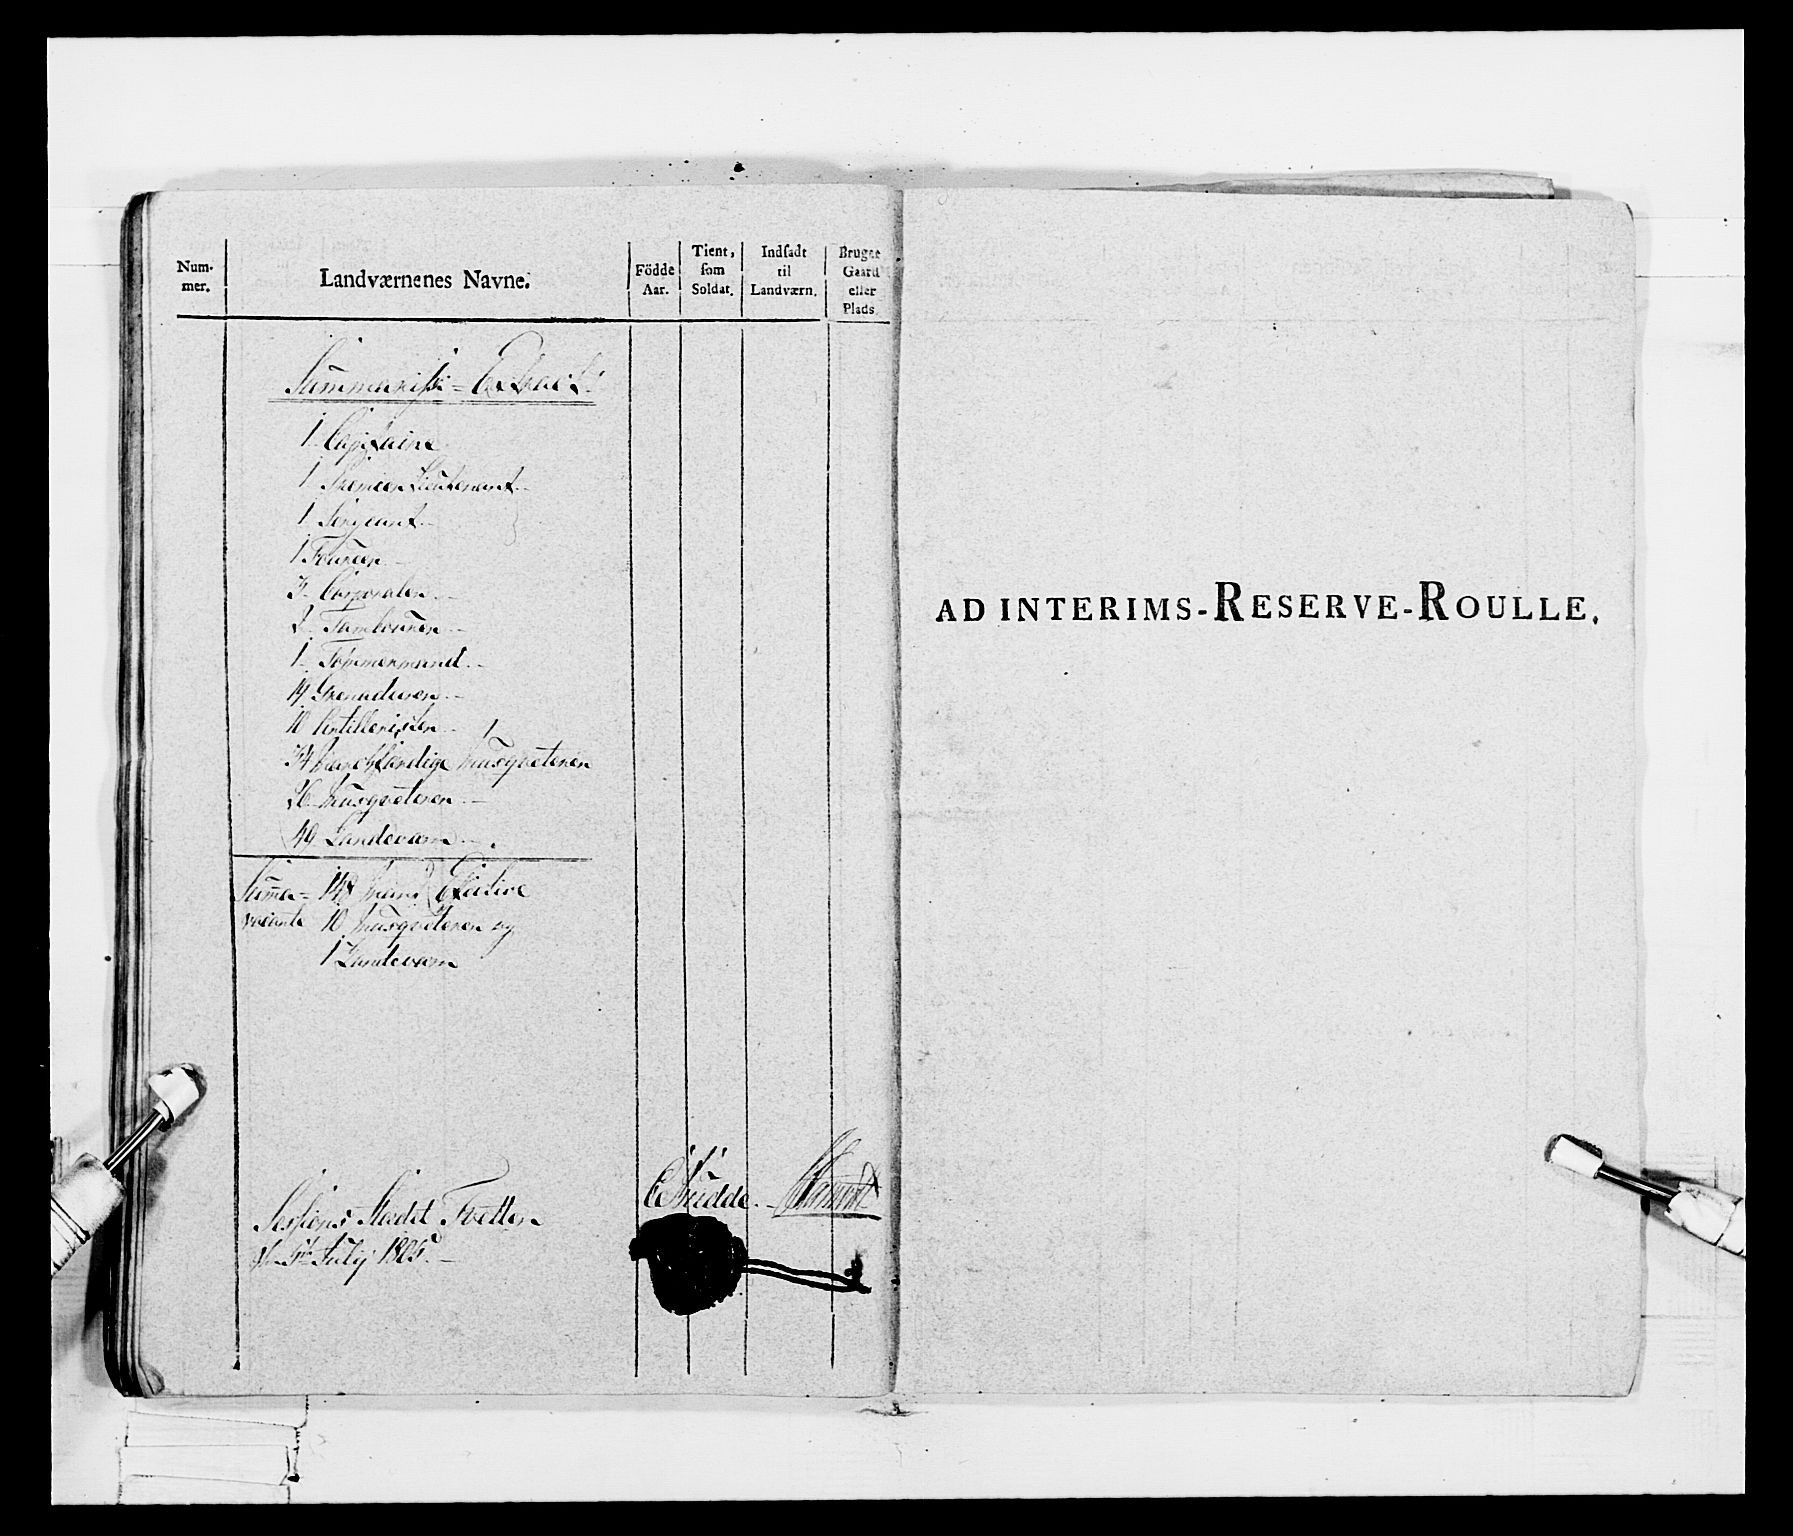 Num-
mer.
Landværnenes Navne.
Födde
Aar.
Tient,
som
Soldat.
Indsadt
til
Landværn.
Bruger
Gaard
eller
Plads
Summarisk = Extract.
1 Capitaine
1 Premier Lieutenant
1 Sergeant
1 Foureer
3 Corporaler
2 Tambourer
1 Tömmermand
19 Grenaderer
10 Artillerister
34 Musqueterer
26 Musqueterer
49 Landeværn
Summa = 148 Mand Efective
vacante 10 Musqueterer og
1 Landeværn
Sessions Stædet Tvetten
July 1805
AD INTERIMS-RESERVE-ROULLE.